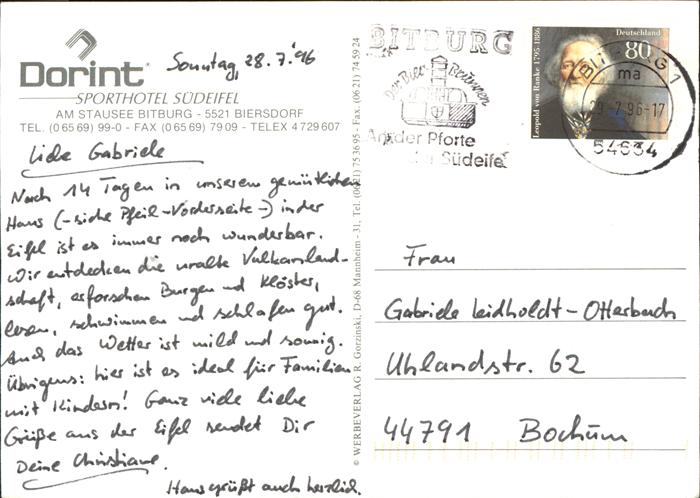 Dorint
SPORTHOTEL SÜDEIFEL
AM STAUSEE BITBURG - 5521 BIERSDORF
TEL. (0 65 69) 99-0 - FAX (0 65 69) 79 09 - TELEX 4 729 607
Sonntag, 28.7.'96
Liebe Gabriele
Nach 14 Tagen in unserem gemütlichen
Haus (-siehe Pfeil-Vorderseite-) in der
Eifel ist es immer noch wunderbar.
Wir entdecken die uralte Vulkanland-
schaft, erforschen Burgen und Klöster,
lesen, schwimmen und schlafen gut.
Auch das Wetter ist mild und sonnig.
Übrigens: hier ist es ideal für Familien
mit Kindern! Ganz viele liebe
Grüße aus der Eifel sendet Dir
Deine Christiane.
Hans grüßt auch herzlich.
© WERBEVERLAG R. Gorzinski, D-68 Mannheim-31, Tel. (06 21) 75 36 95 - Fax. (06 21) 74 59 24
BITBURG
Der Bier Brunnen
An der Pforte
der Südeifel
Deutschland
80
Leopold von Ranke 1795-1886
BITBURG 1
ma
29.-7.96-17
54634
Frau
Gabriele Leidholdt-Otterbach
Uhlandstr. 62
44791 Bochum